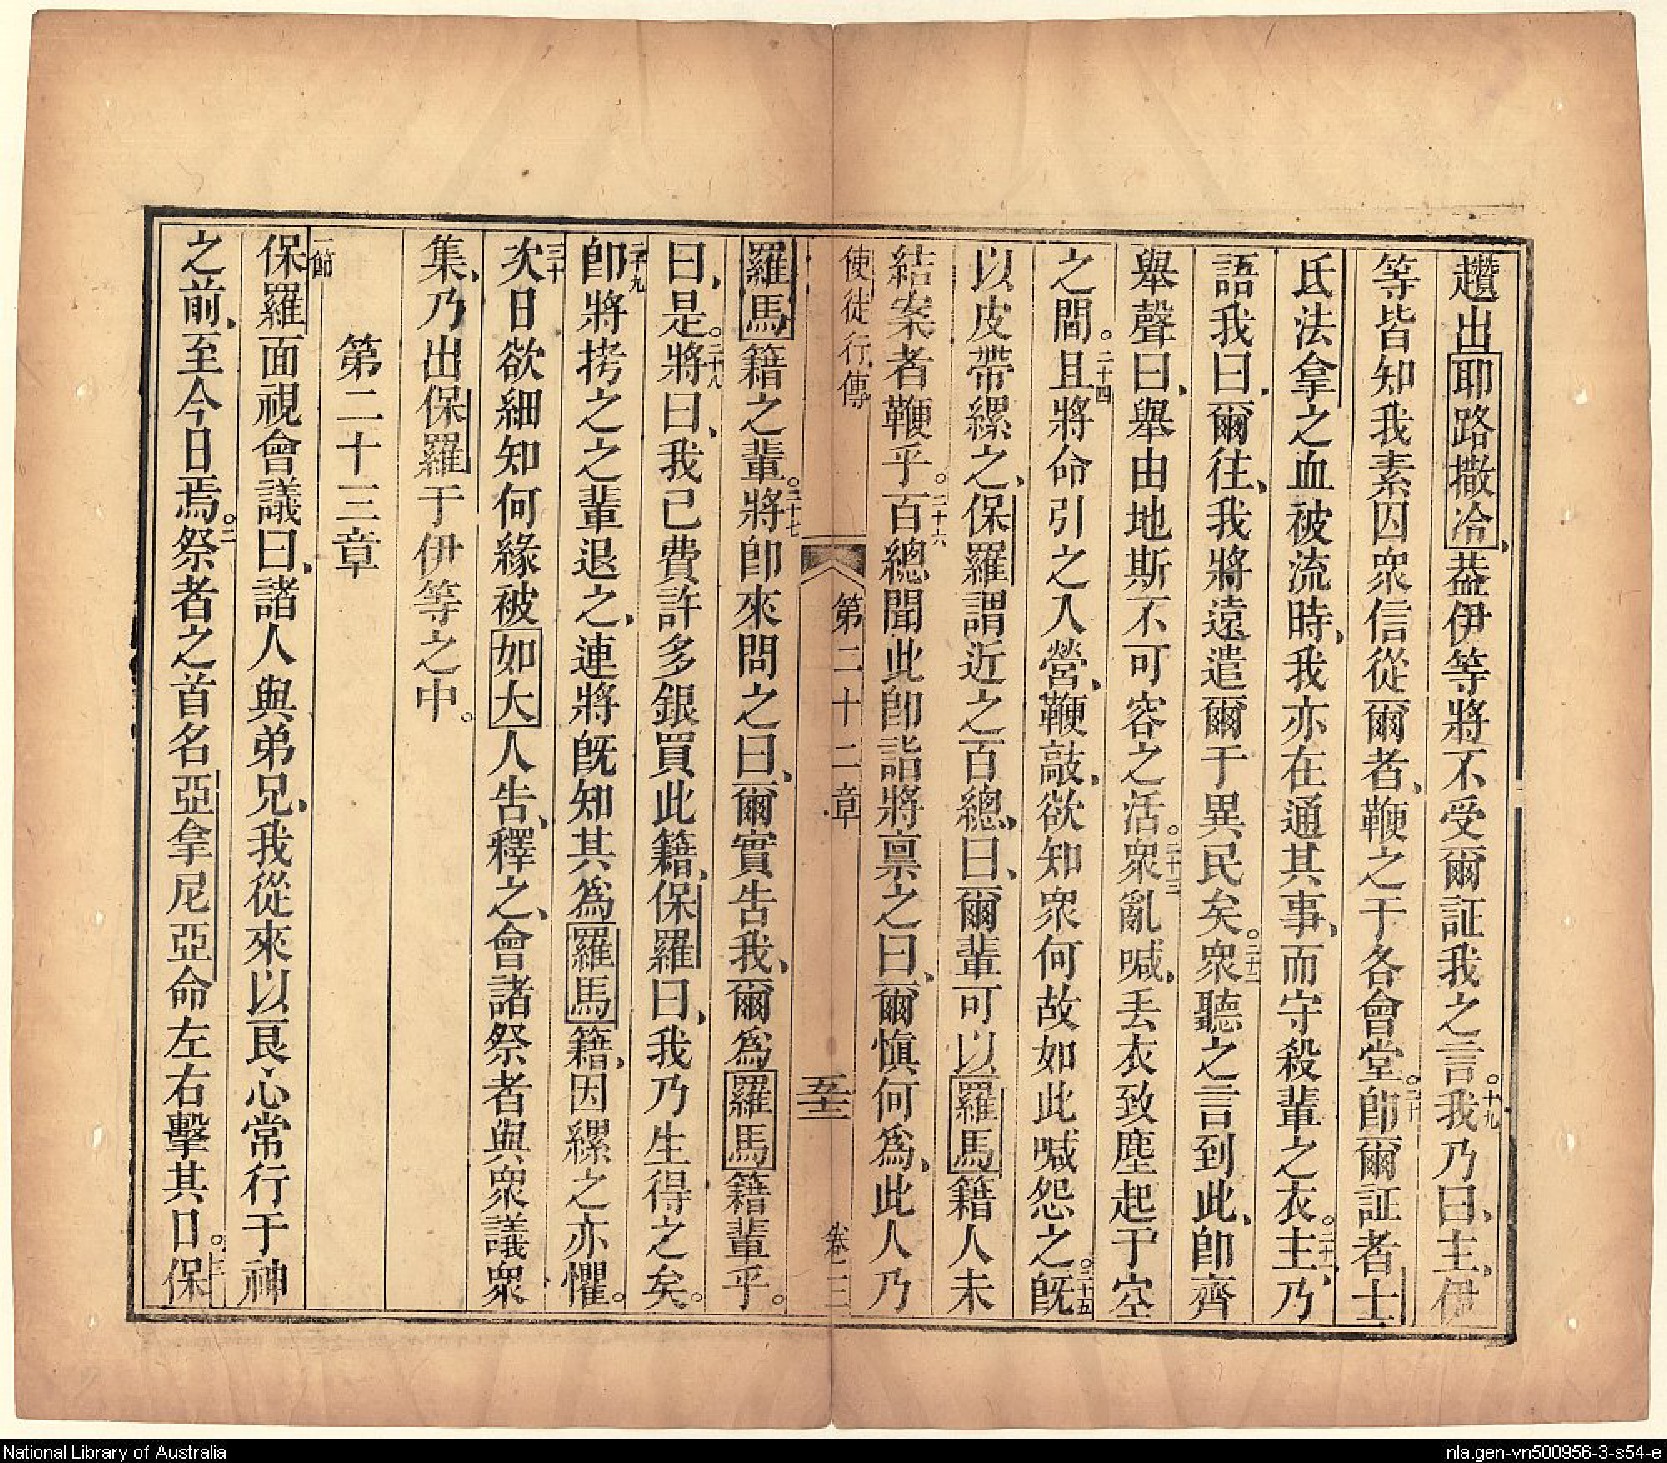 趲出耶路撒冷、葢伊等將不受爾証我之言。十九我乃曰、主、伊
等皆知我素囚衆信從爾者、鞭之于各會堂。二十卽爾証者士
氐法拿之血被流時、我亦在通其事、而守殺輩之衣。二十一主、乃
語我曰、爾往、我將遠遣爾于異民矣。二十二衆聽之言到此、卽齊
舉聲曰、舉由地斯不可容之活。二十三衆亂喊、丢衣致塵起于空
之間。二十四且將命引之入營、鞭敲、欲知衆何故如此喊怨之。二十五旣
以皮帶縲之、保羅謂近之百總、曰、爾輩可以羅馬籍人未
結案者鞭乎。二十六百總聞此卽詣將禀之曰、爾愼何爲、此人乃
使徒行傳 第二十二章 五十三 卷三
羅馬籍之輩。二十七將卽來問之曰、爾實告我、爾爲羅馬籍輩乎。
曰、是。二十八將曰、我已費許多銀買此籍、保羅曰、我乃生得之矣。
二十九卽將拷之之輩退之、連將旣知其爲羅馬籍、因縲之亦懼。
三十次日欲細知何緣被如大人告、釋之、會諸祭者與衆議衆
集、乃出保羅于伊等之中。
第二十三章
一節保羅面視會議曰、諸人與弟兄、我從來以良心常行于神
之前、至今日焉。二祭者之首名亞拿尼亞命左右擊其口。三保
National Library of Australia
nla.gen-vn500956-3-s54-e